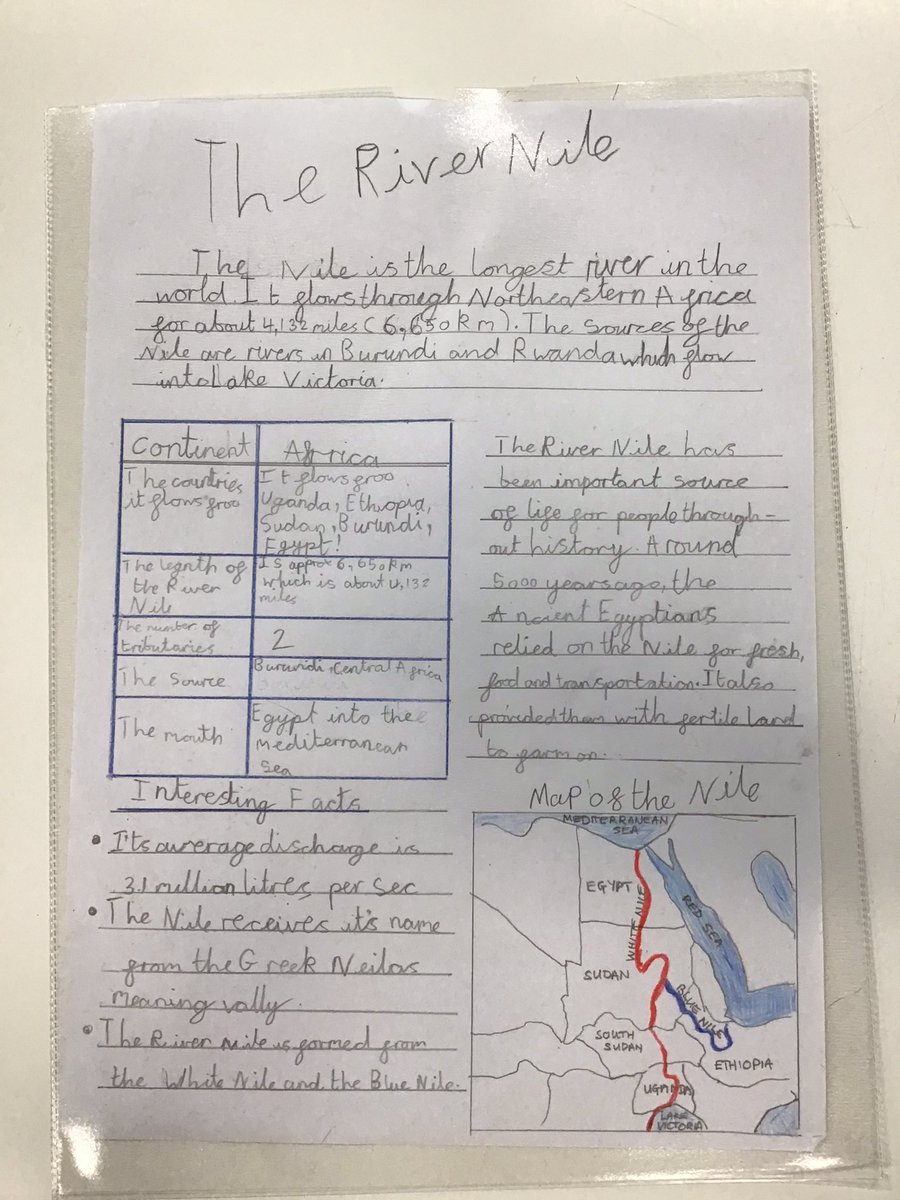 The River Nile
The Nile is the longest river in the
world. It flows through Northeastern Africa
for about 4,132 miles (6,650km). The sources of the
Nile are rivers in Burundi and Rwanda which flow
into Lake Victoria.
Continent
Africa
The countries
it flows froo
It flows froo
Uganda, Ethiopia,
Sudan, Burundi,
Egypt!
The legnth of
the River
Nile
Is approx 6,650km
which is about 4,132
miles
The number of
tributaries
2
The Source
Burundi, Central Africa
The mouth
Egypt into the
mediterranean
Sea
The River Nile has
been important source
of life for people through-
out history. Around
5000 years ago, the
Ancient Egyptians
relied on the Nile for fresh,
food and transportation. It also
provided them with fertile land
to farm on.
Interesting Facts
• It's average discharge is
3.1 million litres per sec
• The Nile receives it's name
from the Greek Neilos
meaning vally.
• The River Nile is formed from
the White Nile and the Blue Nile.
Map of the Nile
MEDITERRANEAN
SEA
EGYPT
WHITE NILE
RED SEA
SUDAN
BLUE NILE
SOUTH
SUDAN
ETHIOPIA
UGANDA
LAKE
VICTORIA